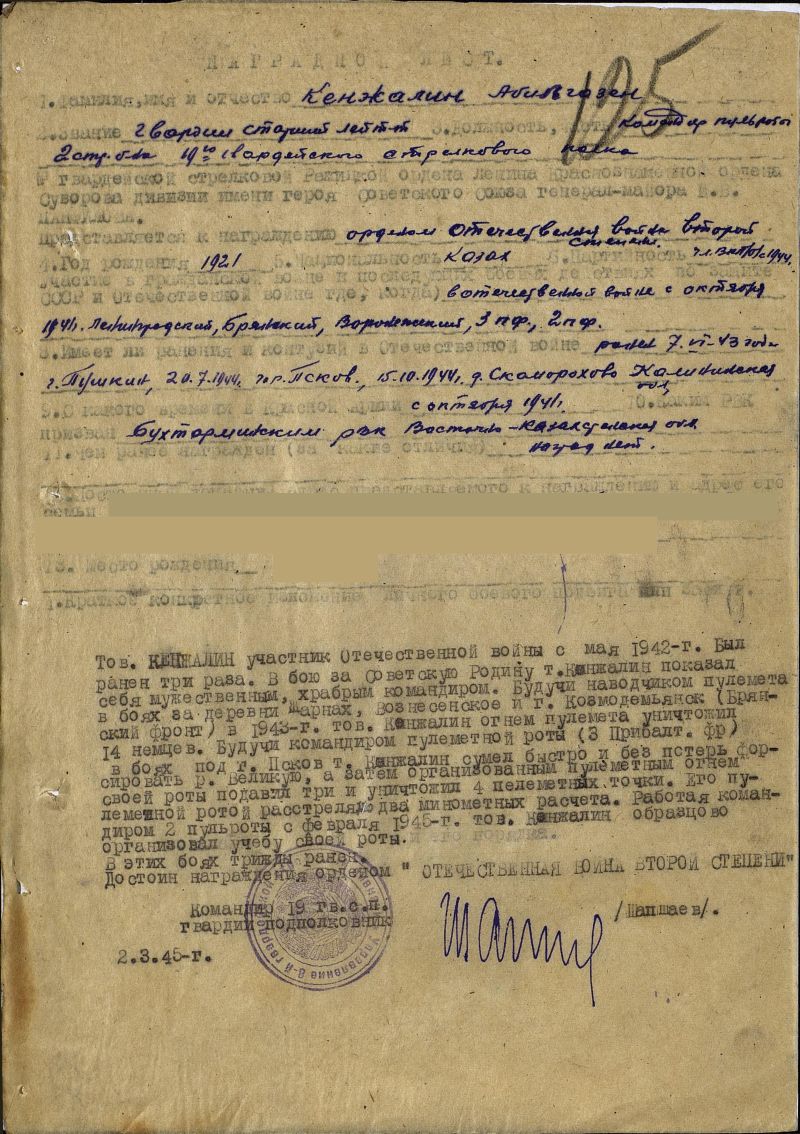 НАГРАДНОЙ ЛИСТ.
125
1. Фамилия, имя и отчество Кенжалин Абильгазен
2. Звание гвардии старший лейт-т 3. Должность, командир пульроты
2 стр. б-на 19го гвардейского стрелкового полка
гвардейской стрелковой Режицкой ордена Ленина Краснознаменной ордена
Суворова дивизии имени героя Советского Союза генерал-майора И.В.
ПАНФИЛОВА.
Представляется к награждению орденом Отечественная война второй
степени.
4. Год рождения 1921 5. Национальность казах 6. Партийность чл. ВКП(б) с 1944.
участие в гражданской войне и последующих боевых действиях по защите
СССР и Отечественной войне где, когда) в отечественной войне с октября
1941г. Ленинградский, Брянский, Воронежский, 3 пф., 2 пф.
8. Имеет ли ранения и контузии в Отечественной войне ранен 7.VI-43 года
г. Пушкин, 20.7.1944г. г. Псков, 15.10.1944г. д. Скоморохово Калининская
обл,
9. С какого времени в Красной Армии с октября 1941г. 10. Каким РВК
призван Бухтарминским рвк Восточно-Казахстанская обл
11. Чем ранее награжден (за какие отличия) наград нет.
представляемого к награждению и адрес его
семьи
13. Место рождения
1. Краткое конкретное изложение личного боевого подвига или
Тов. КЕНЖАЛИН участник Отечественной войны с мая 1942-г. Был
ранен три раза. В бою за Советскую Родину т. Кенжалин показал
себя мужественным, храбрым командиром. Будучи наводчиком пулемета
в боях за деревни Шарнах, Вознесенское и г. Козмодемьянск (Брян-
ский фронт) в 1943-г. тов. Кенжалин огнем пулемета уничтожил
14 немцев. Будучи командиром пулеметной роты (3 Прибалт. фр)
в боях под г. Псков т. Кенжалин сумел быстро и без потерь фор-
сировать р. Великую, а затем организованным пулеметным огнем
своей роты подавил три и уничтожил 4 пелеметных точки. Его пу-
леметной ротой расстрелян два минометных расчета. Работая коман-
диром 2 пульроты с февраля 1945-г. тов. Кенжалин образцово
организовал учебу своей роты.
В этих боях трижды ранен.
Достоин награждения орденом " ОТЕЧЕСТВЕННАЯ ВОЙНА ВТОРОЙ СТЕПЕНИ"
Командир 19 гв.с.п.
гвардии подполковник /Шапшаев/.
2.3.45-г.
Управление 8-й гвард